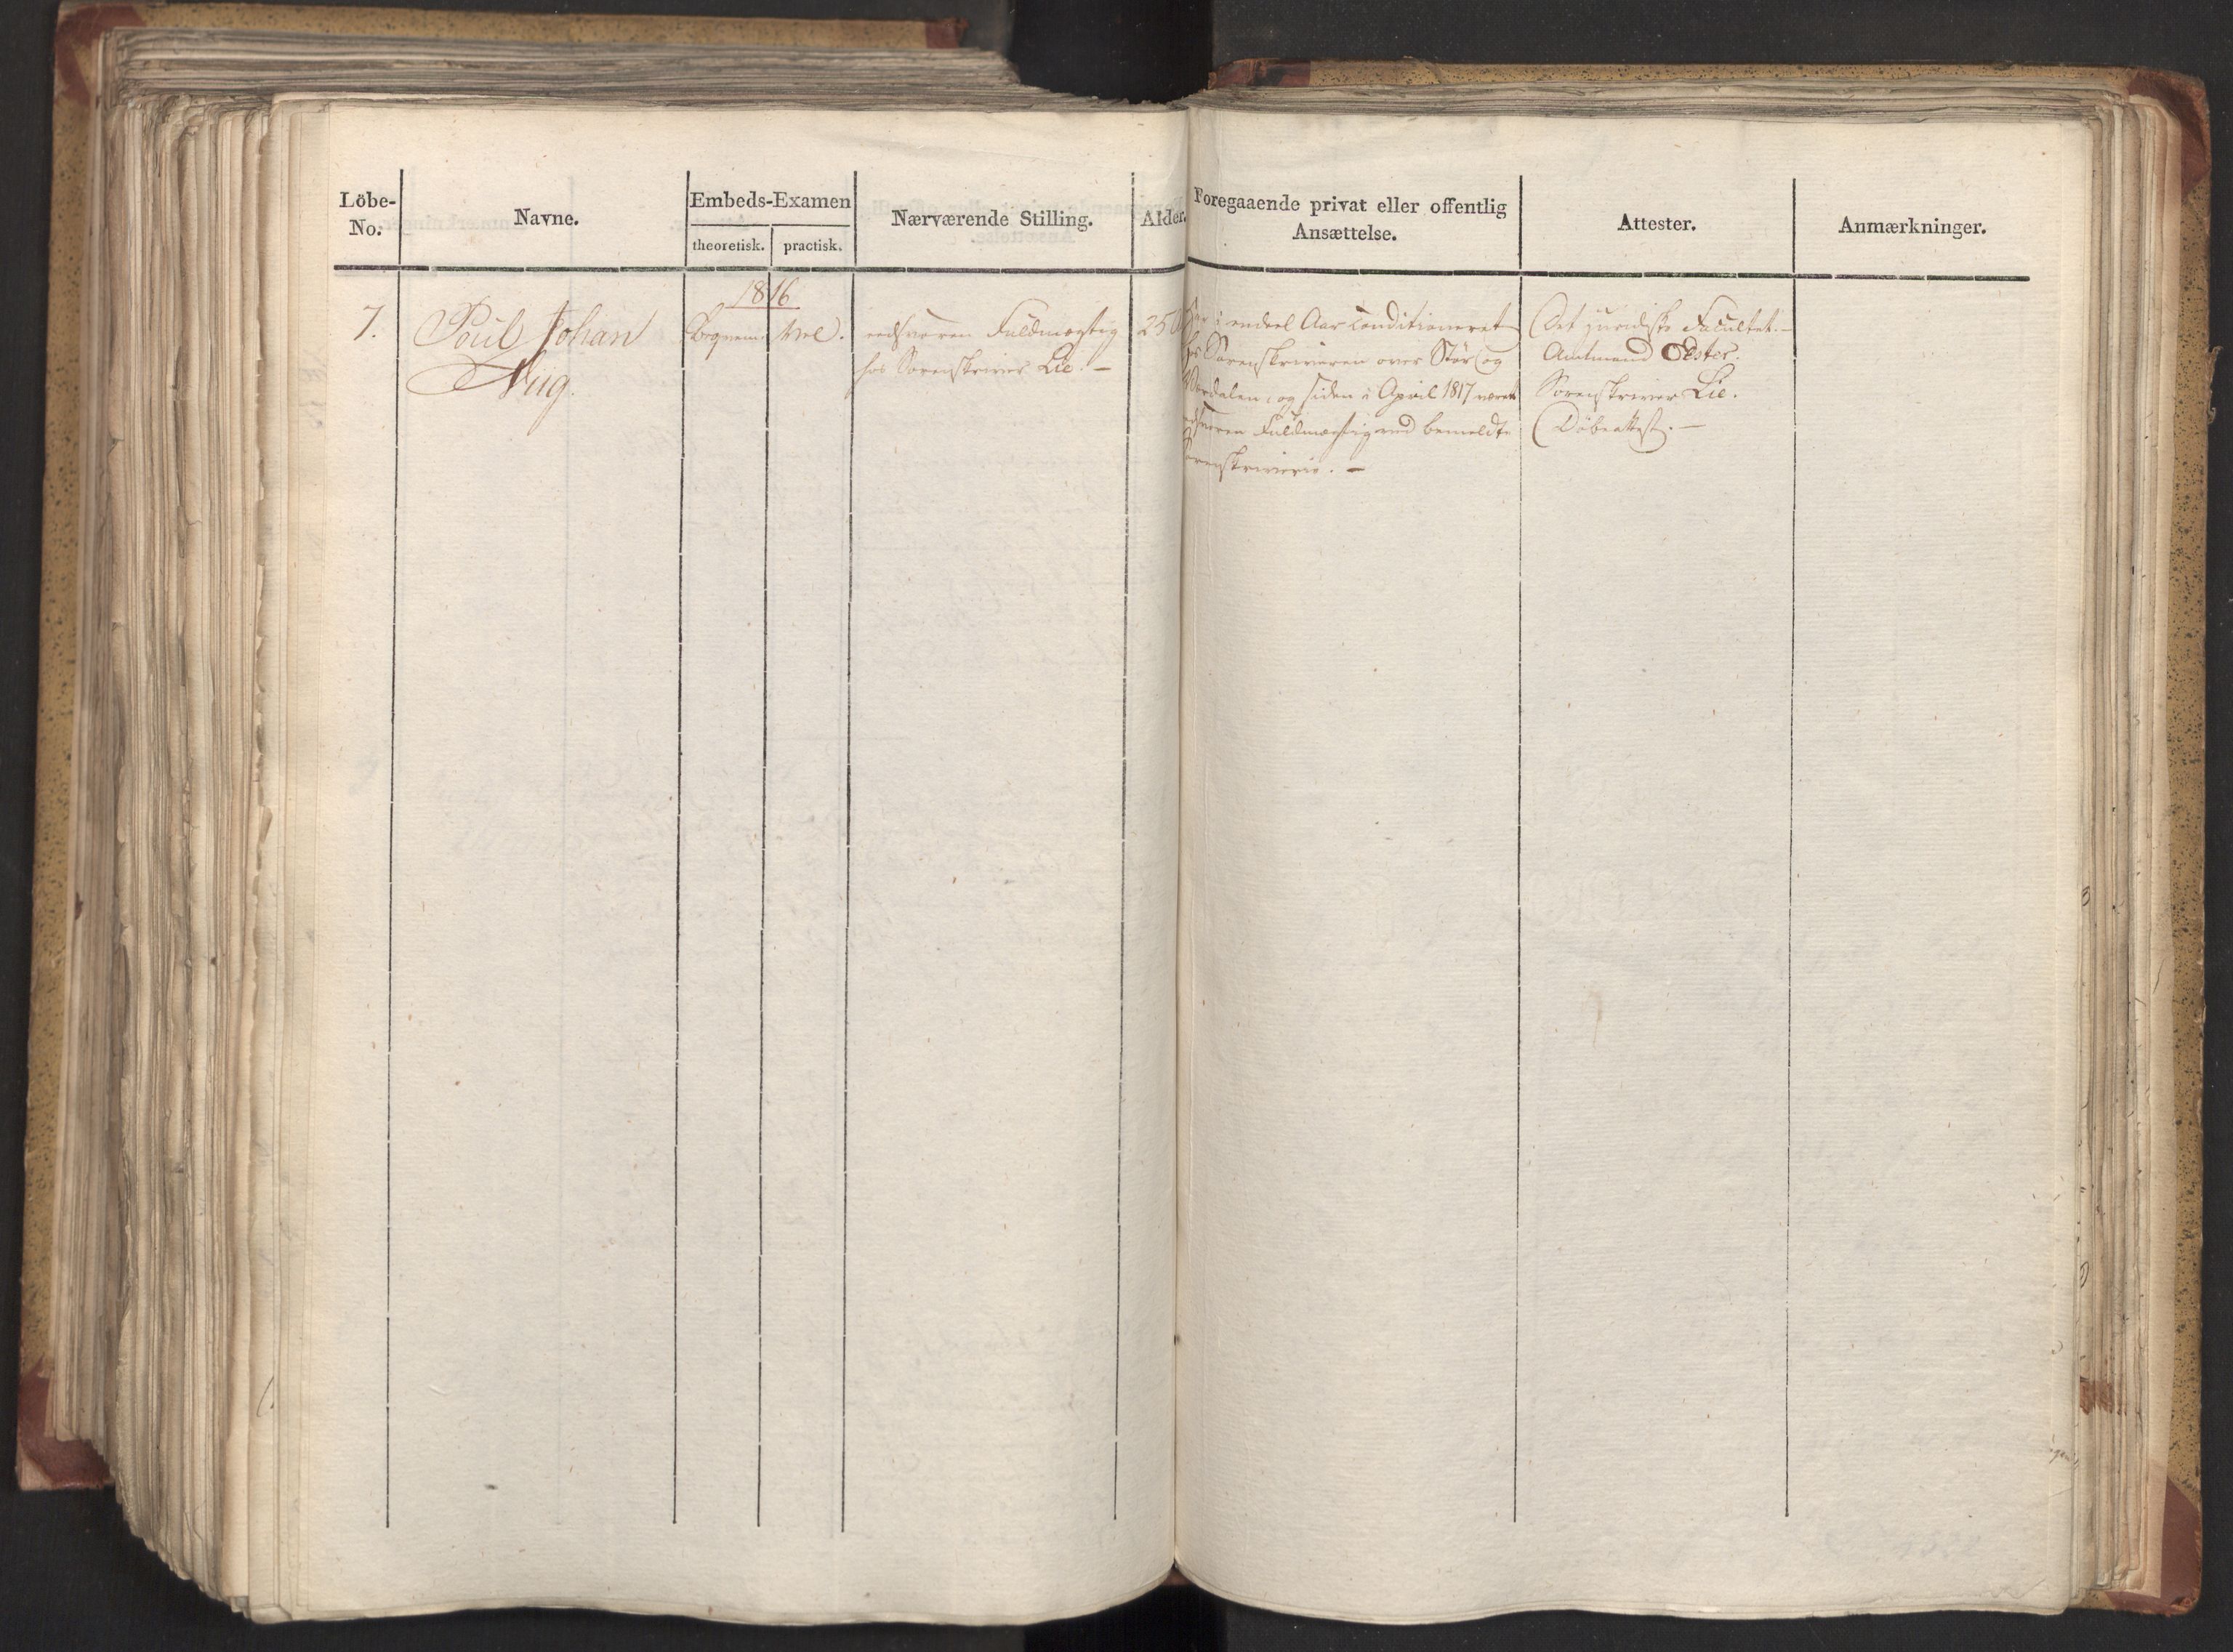 Löbe-
No.
Navne.
Embeds-Examen
theoretisk. practisk.
Nærværende Stilling.
Alder.
Foregaaende privat eller offentlig
Ansættelse.
Attester.
Anmærkninger.
7.
Poul Johan
Aug
1816
Beqvem. Vel.
eedsvoren Fuldmægtig
hos Sorenskriver Lie. –
25
Har i endeel Aar conditioneret
hos Sorenskriveren over Stør og
Værdalen, og siden i April 1817 været
eedsvoren Fuldmægtig ved bemeldte
Sorenskriverie. –
Det juridiske Facultet. –
Amtmand
Sorenskriver Lie.
Döbeattest. –